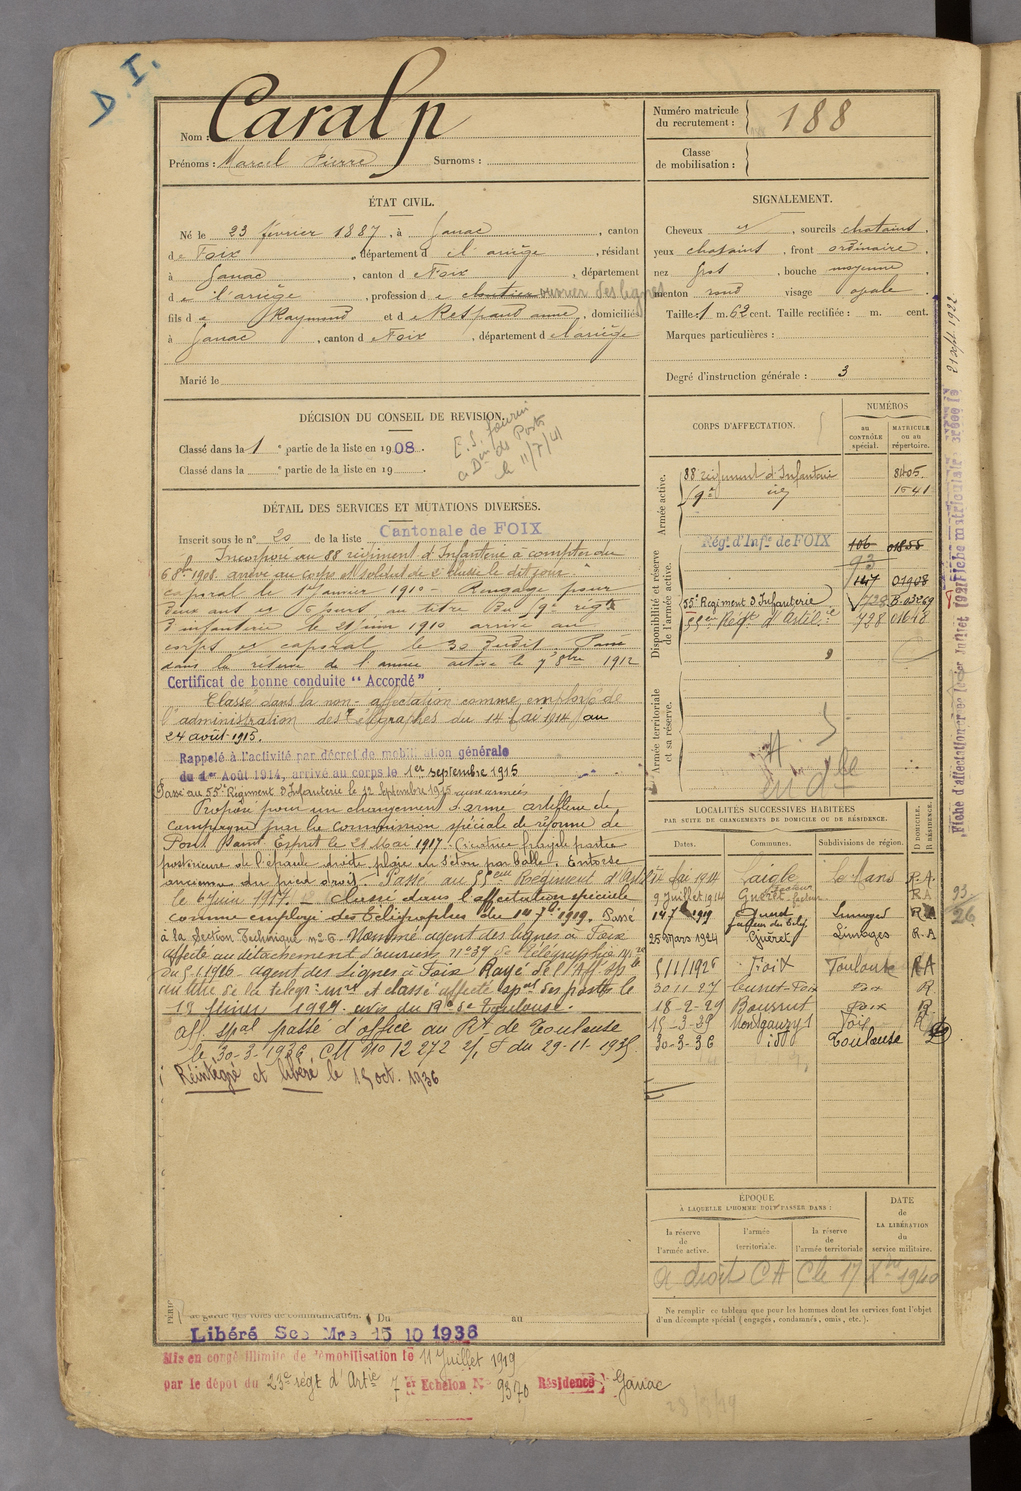 D. I.
Nom : Caralp
Prénoms : Marcel Pierre Surnoms :
Numéro matricule du recrutement : 188
Classe de mobilisation :
ÉTAT CIVIL.
Né le 23 février 1887, à Ganac, canton
de Foix, département de l'ariège, résidant
à Ganac, canton de Foix, département
de l'ariège, profession de ouvrier des lignes
fils de Raymond et de Respaud anne, domiciliés
à Ganac, canton de Foix, département de l'ariège
Marié le
SIGNALEMENT.
Cheveux et, sourcils chatains,
yeux chatains, front ordinaire,
nez gros, bouche moyenne,
menton rond visage ovale
Taille : 1 m. 62 cent. Taille rectifiée : m. cent.
Marques particulières :
Degré d'instruction générale : 3
DÉCISION DU CONSEIL DE REVISION.
Classé dans la 1e partie de la liste en 1908.
Classé dans la e partie de la liste en 19 .
le 11/7/41
DÉTAIL DES SERVICES ET MUTATIONS DIVERSES.
Inscrit sous le n° 20 de la liste Cantonale de FOIX
Incorporé au 88 régiment d'Infanterie à compter du
6 8bre 1908. arrivé au corps et soldat de 2e classe le dit jour
caporal le 1er janvier 1910 - Rengagé pour
deux ans et 6 jours au titre du 9e régt
d'infanterie le 21 juin 1910 arrivé au
corps et caporal le 30 dudit. Passé
dans la réserve de l'armée active le 7 8bre 1912
Certificat de bonne conduite "Accordé"
Classé dans la non-affectation comme employé de
l'administration des Télégraphes du 14 Mai 1914 au
24 août 1915.
Rappelé à l'activité par décret de mobilisation générale
du 1er Août 1914, arrivé au corps le 1er septembre 1915
Passé au 55e Régiment d'Infanterie le 12 Septembre 1915 aux armées
Proposé pour un changement d'arme artillerie de
campagne par la commission spéciale de réforme de
Pont Saint Esprit le 21 Mai 1917. Cicatrice fragile partie
postérieure de l'épaule droite plaie en séton par balle. Entorse
ancienne du pied droit. Passé au 55eme Régiment d'Artie
le 6 juin 1917. - Classé dans l'affectation spéciale
comme employé des Télégraphes du 1er 7bre 1919. Passé
à la Section Technique n° 5. Nommé agent des lignes à Foix
affecté au détachement d'ouvriers n° 39 de Télégraphie Mre
du 5-1-1926 - agent des Lignes à Foix Rayé de l'Aff. Sple
au titre de la télégr: mre et classé affecté spal des postes le
12 février 1927. avis du Ru de Toulouse.
Aff. spal passé d'office au Rt de Toulouse
le 30-3-1936 CM No 12272 2/, S du 29-11-1935
Réintégré et libéré le 15 oct. 1936
CORPS D'AFFECTATION.
NUMÉROS
au CONTRÔLE spécial.
MATRICULE ou au répertoire.
Armée active.
88 régiment d'Infanterie 8405
9e id 1541
Disponibilité et réserve de l'armée active.
Régt d'Infie de FOIX 106 01855
93
147 01908
55e Régiment d'Infanterie 728 B.03269
55eme Régt d'Artillie 728 01648
Armée territoriale et sa réserve.
LOCALITÉS SUCCESSIVES HABITÉES
PAR SUITE DE CHANGEMENTS DE DOMICILE OU DE RÉSIDENCE.
Dates. Communes. Subdivisions de région. D DOMICILE. R RÉSIDENCE.
14 Mai 1914 Laigle Le Mans R.A.
9 Juillet 1914 Guéret facteur RA
14 7 1919 Limoges RA
25 Mars 1924 Guéret Limoges R.A
5/1/1926 Foix Toulouse RA
30 11 27 Foix R.
18-2-29 Foix R
15-3-35 Montgauzy Foix R
30-3-36 id Toulouse
ÉPOQUE
À LAQUELLE L'HOMME DOIT PASSER DANS :
la réserve de l'armée active.
l'armée territoriale.
la réserve de l'armée territoriale
DATE de LA LIBÉRATION du service militaire.
A droit CA Cle 17 1940
Ne remplir ce tableau que pour les hommes dont les services font l'objet
d'un décompte spécial (engagés, condamnés, omis, etc.).
Du au
Libéré Sce Mre 15 10 1936
Mis en congé illimité de démobilisation le 11 Juillet 1919
par le dépôt du 23e régt d'Artie 7e Echelon N° 9370 Résidence : Ganac
21 sept 1922
93
26